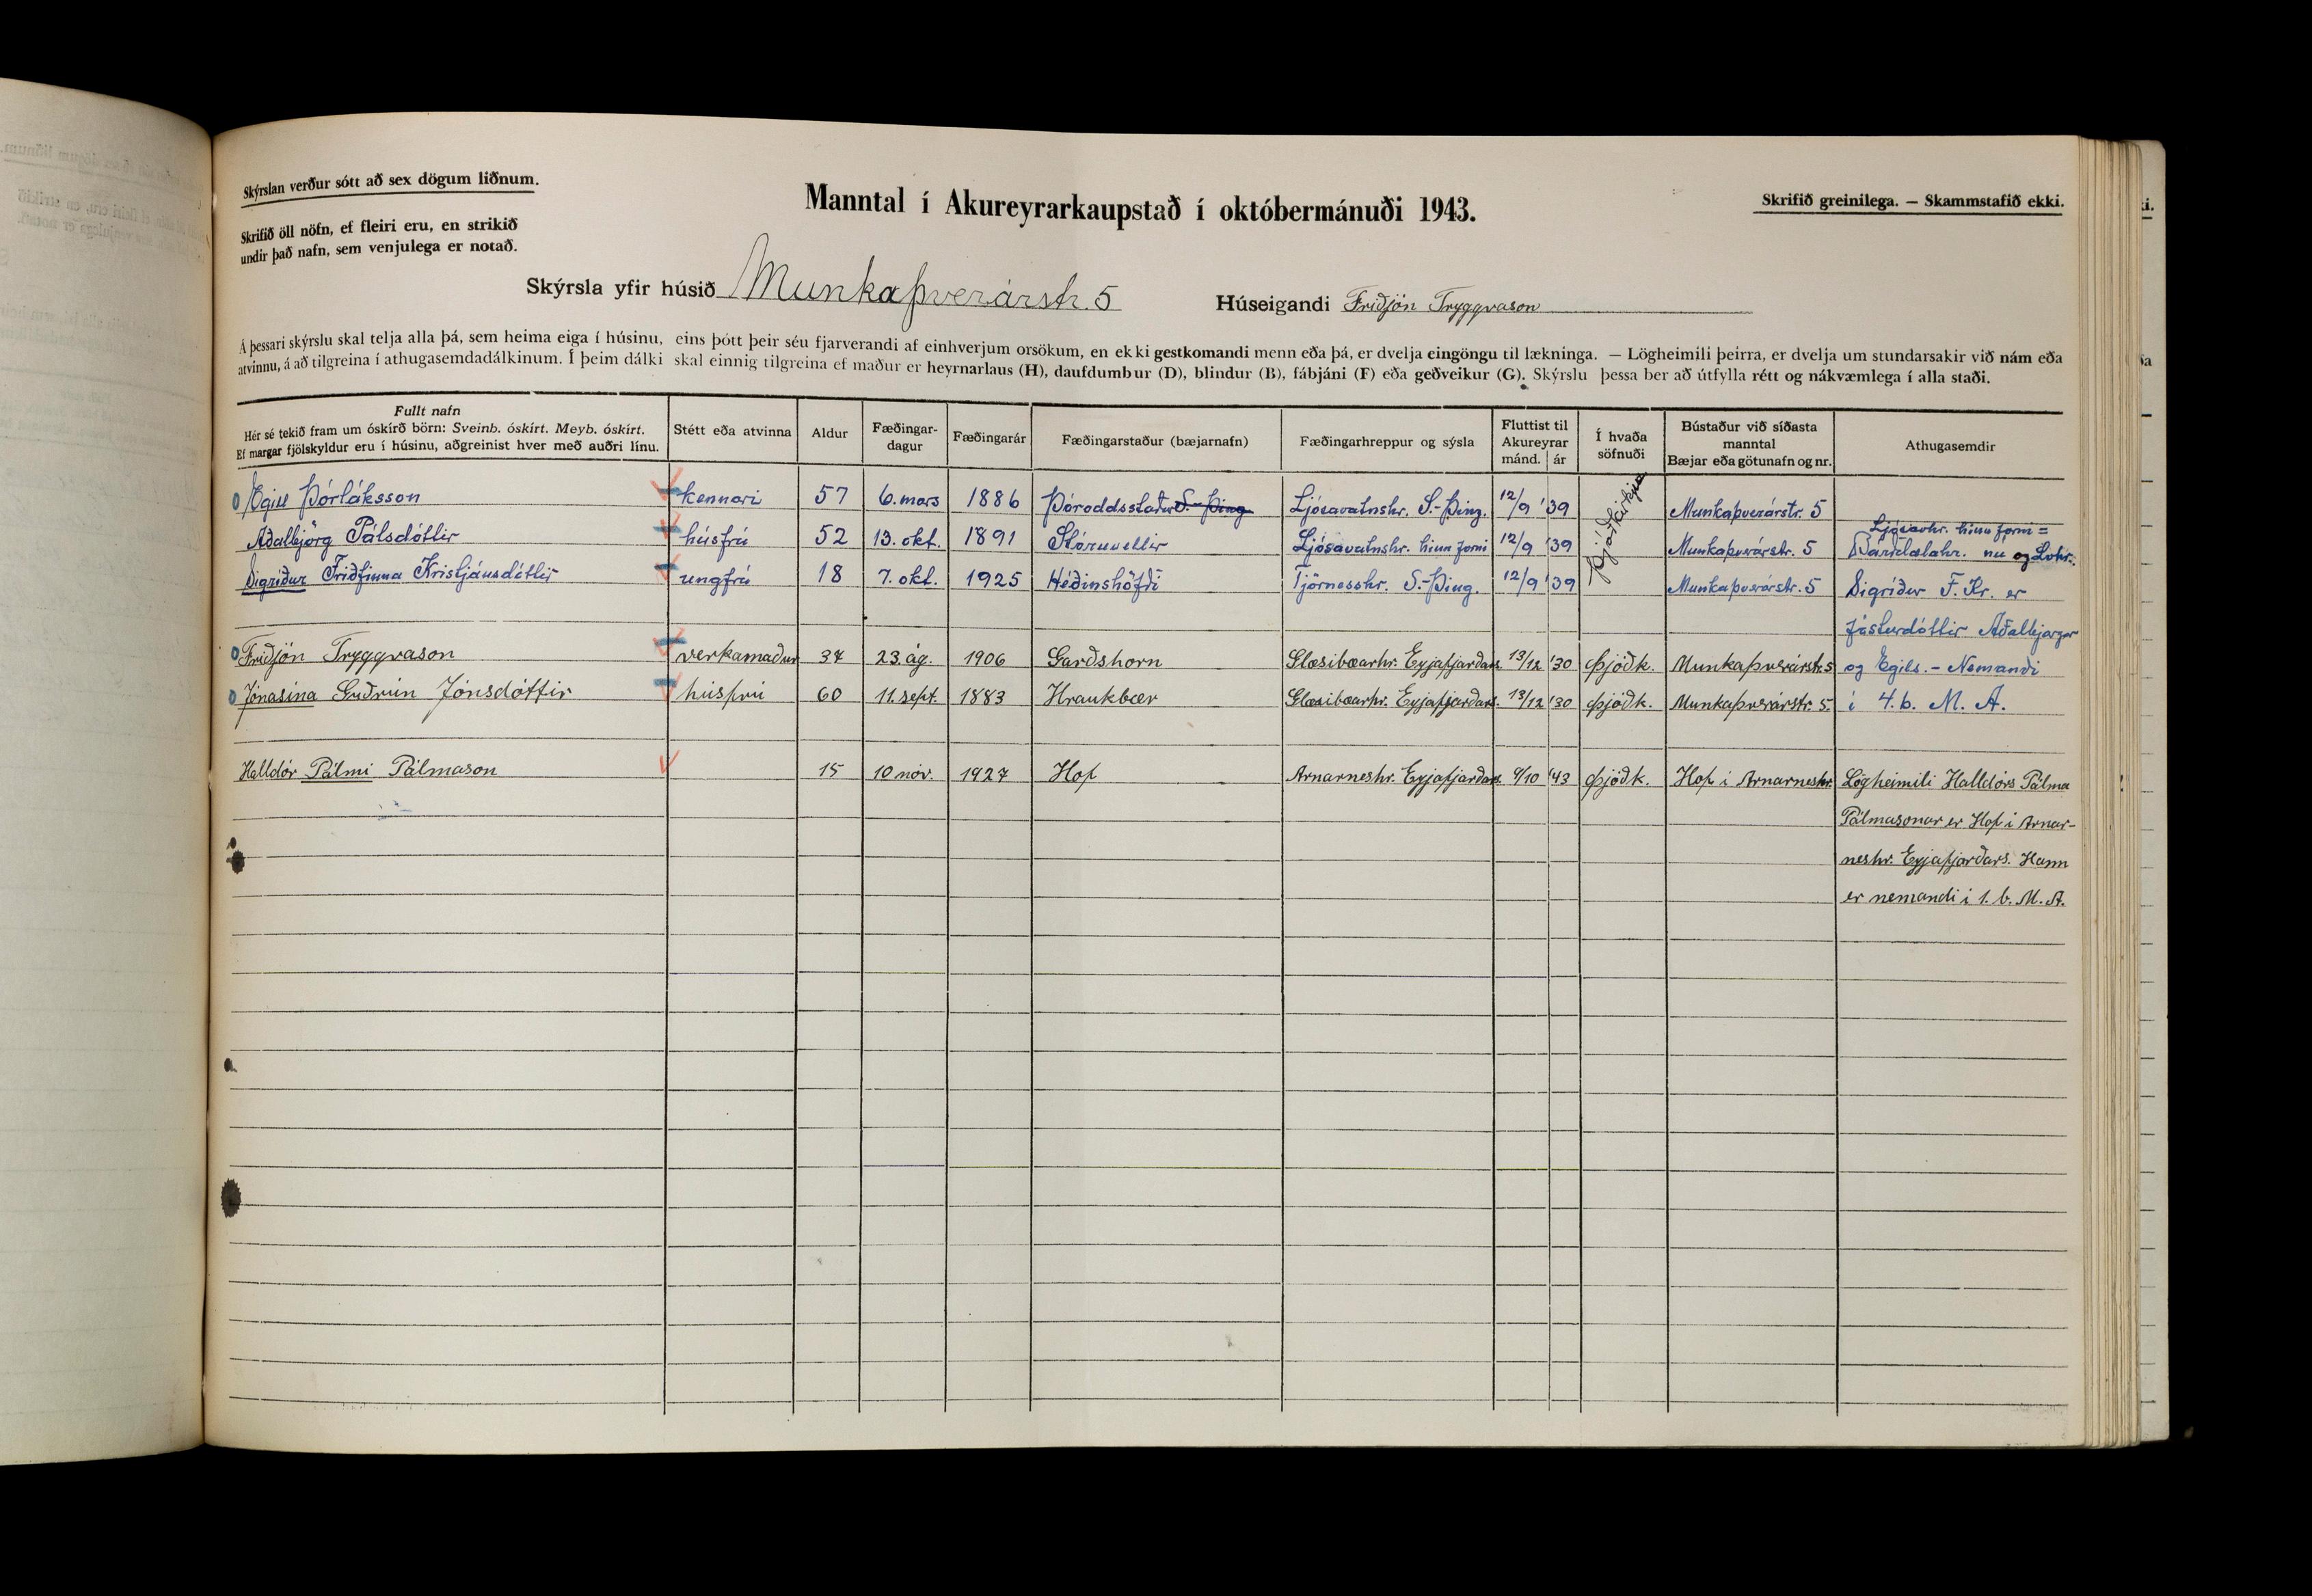 Skýrslan verður sótt að sex dögum liðnum.
Skrifið öll nöfn, ef fleiri eru, en strikið
undir það nafn, sem venjulega er notað.
Manntal í Akureyrarkaupstað í októbermánuði 1943.
Skrifið greinilega. — Skammstafið ekki.
Skýrsla yfir húsið Munkaþverárstr. 5 Húseigandi Friðjón Tryggvason
Á þessari skýrslu skal telja alla þá, sem heima eiga í húsinu, eins þótt þeir séu fjarverandi af einhverjum orsökum, en ekki gestkomandi menn eða þá, er dvelja eingöngu til lækninga. — Lögheimili þeirra, er dvelja um stundarsakir við nám eða
atvinnu, á að tilgreina í athugasemdadálkinum. Í þeim dálki skal einnig tilgreina ef maður er heyrnarlaus (H), daufdumbur (D), blindur (B), fábjáni (F) eða geðveikur (G). Skýrslu þessa ber að útfylla rétt og nákvæmlega í alla staði.
Fullt nafn
Hér sé tekið fram um óskírð börn: Sveinb. óskírt. Meyb. óskírt.
Ef margar fjölskyldur eru í húsinu, aðgreinist hver með auðri línu.
Stétt eða atvinna
Aldur
Fæðingar-
dagur
Fæðingarár
Fæðingarstaður (bæjarnafn)
Fæðingarhreppur og sýsla
Fluttist til
Akureyrar
mánd. ár
Í hvaða
söfnuði
Bústaður við síðasta
manntal
Bæjar eða götunafn og nr.
Athugasemdir
Egill Þórláksson kennari 57 6. mars 1886 Þóroddsstaður S.-Þing Ljósavatnshr. S.-Þing. 12/9 '39 þjóðkirkju Munkaþverárstr. 5
Ljósavhr. hinn forni =
Aðalbjörg Pálsdóttir húsfrú 52 13. okt. 1891 Stóruvellir Ljósavatnshr. hinn forni 12/9 '39 Munkaþverárstr. 5 Bárðdalahr. nu og Lvhr.
Sigríður Friðfinna Kristjánsdóttir ungfrú 18 7. okt. 1925 Héðinshöfði Tjörnesshr. S.-Þing. 12/9 '39 Munkaþverárstr. 5 Sigríður F. Kr. er
fósturdóttir Aðalbjargar
Friðjón Tryggvason verkamaður 37 23. ág. 1906 Garðshorn Glæsibæarhr. Eyjafjarðars. 13/12 '30 þjóðk. Munkaþverárstr. 5 og Egils. - Nemandi
Jónasína Guðrún Jónsdóttir húsfrú 60 11. sept. 1883 Hraukbær Glæsibæarhr. Eyjafjarðars. 13/12 '30 þjóðk. Munkaþverárstr. 5. í 4. b. M. A.
Halldór Pálmi Pálmason 15 10 nóv. 1927 Hof Arnarneshr. Eyjafjarðars. /10 '43 þjóðk. Hof í Arnarneshr. Lögheimili Halldórs Pálma
Pálmasonar er Hof í Arnar-
neshr. Eyjafjarðars. Hann
er nemandi í 1. b. M. A.